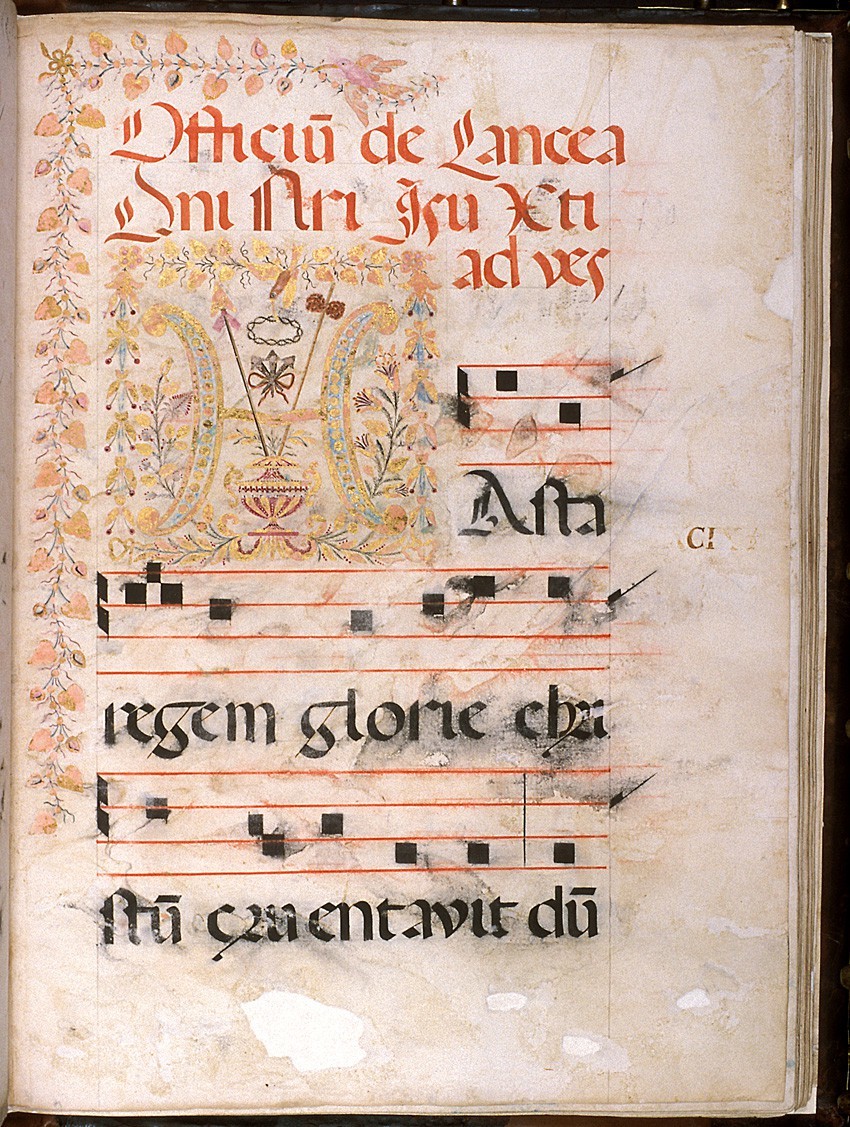 Officiū de Lancea
Dni Nri Jsu Xti
ad ves
H
Asta
regem glorie chri
stū cruentavit dū